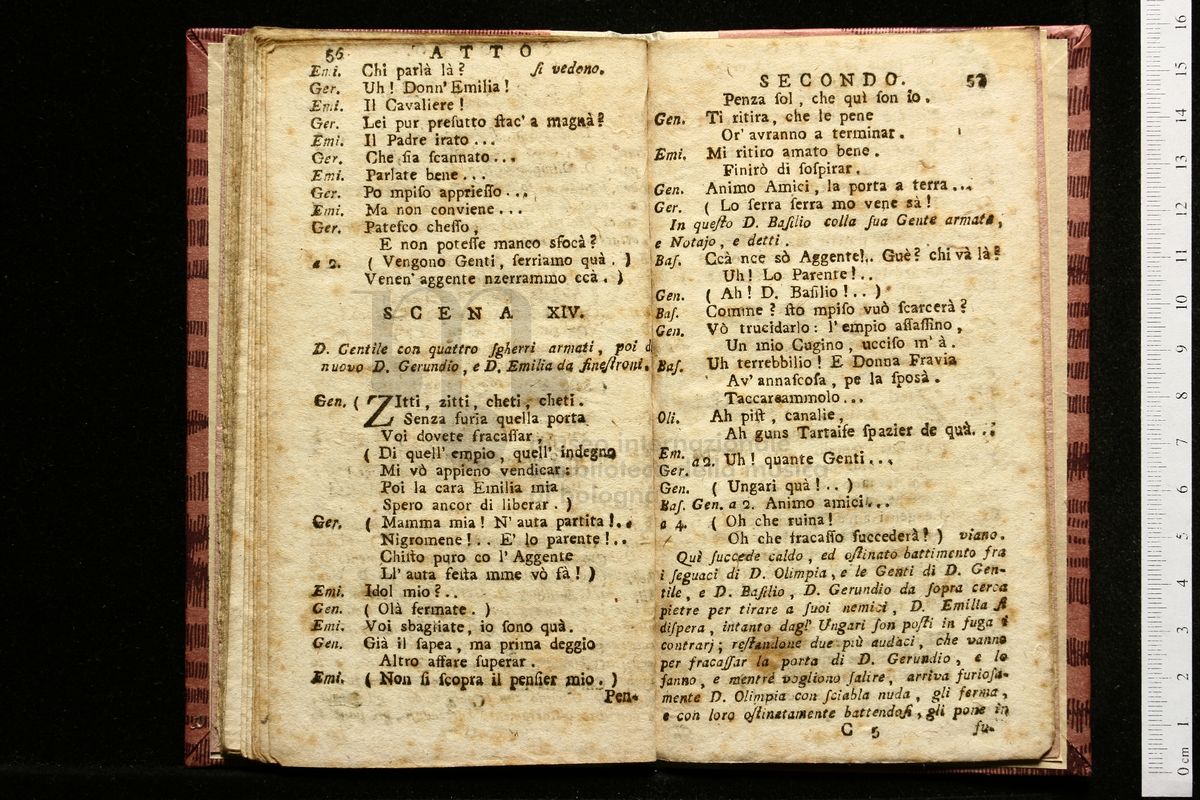 56 ATTO
Emi. Chi parlà là? ſi vedono.
Ger. Uh! Donn' Emilia!
Emi. Il Cavaliere!
Ger. Lei pur preſutto ſtac' a magnà?
Emi. Il Padre irato...
Ger. Che ſia ſcannato...
Emi. Parlate bene...
Ger. Po mpiſo apprieſſo...
Emi. Ma non conviene...
Ger. Pateſco cheſſo,
E non poteſſe manco sfocà?
a 2. ( Vengono Genti, ſerriamo quà. )
Venen' aggente nzerrammo ccà. )
SCENA XIV.
D. Gentile con quattro ſgherri armati, poi d
nuovo D. Gerundio, e D. Emilia da fineſtroni.
Gen. ( ZItti, zitti, cheti, cheti.
Senza furia quella porta
Voi dovete fracaſſar.
( Di quell' empio, quell' indegno
Mi vò appieno vendicar:
Poi la cara Emilia mia
Spero ancor di liberar. )
Ger. ( Mamma mia! N' auta partita!..
Nigromene!.. E' lo parente!..
Chiſto puro co l' Aggente
Ll' auta feſta mme vò fà! )
Emi. Idol mio?..
Gen. ( Olà fermate. )
Emi. Voi sbagliate, io ſono quà.
Gen. Già il ſapea, ma prima deggio
Altro affare ſuperar.
Emi. ( Non ſi ſcopra il penſier mio. )
Pen-
SECONDO. 57
Penza ſol, che quì ſon io.
Gen. Ti ritira, che le pene
Or' avranno a terminar.
Emi. Mi ritiro amato bene.
Finirò di ſoſpirar.
Gen. Animo Amici, la porta a terra...
Ger. ( Lo ſerra ſerra mo vene sà!
In queſto D. Baſilio colla ſua Gente armata,
e Notajo, e detti.
Baſ. Ccà nce sò Aggente!.. Guè? chi và là?
Uh! Lo Parente!..
Gen. ( Ah! D. Baſilio!.. )
Baſ. Comme? ſto mpiſo vuò ſcarcerà?
Gen. Vò trucidarlo: l' empio aſſaſſino,
Un mio Cugino, ucciſo m' à.
Baſ. Uh terrebbilio! E Donna Fravia
Av' annaſcoſa, pe la ſposà.
Taccareammolo...
Oli. Ah piſt, canalie,
Ah guns Tartaife ſpazier de quà...
Em.
Ger. a 2. Uh! quante Genti...
Gen. ( Ungari quà!.. )
Baſ. Gen. a 2. Animo amici...
a 4. ( Oh che ruina!
Oh che fracaſſo ſuccederà! ) viano.
Quì ſuccede caldo, ed oſtinato battimento fra
i ſeguaci di D. Olimpia, e le Genti di D. Gen-
tile, e D. Baſilio, D. Gerundio da ſopra cerca
pietre per tirare a ſuoi nemici, D. Emilia ſi
diſpera, intanto dagl' Ungari ſon poſti in fuga i
contrarj; reſtandone due più audaci, che vanno
per fracaſſar la porta di D. Gerundio, e lo
fanno, e mentre vogliono ſalire, arriva furioſa-
mente D. Olimpia con ſciabla nuda, gli ferma,
e con loro oſtinatamente battendoſi, gli pone in
C 5 fu-
museo internazionale
biblioteca della musica
bologna
0 cm 1 2 3 4 5 6 7 8 9 10 11 12 13 14 15 16